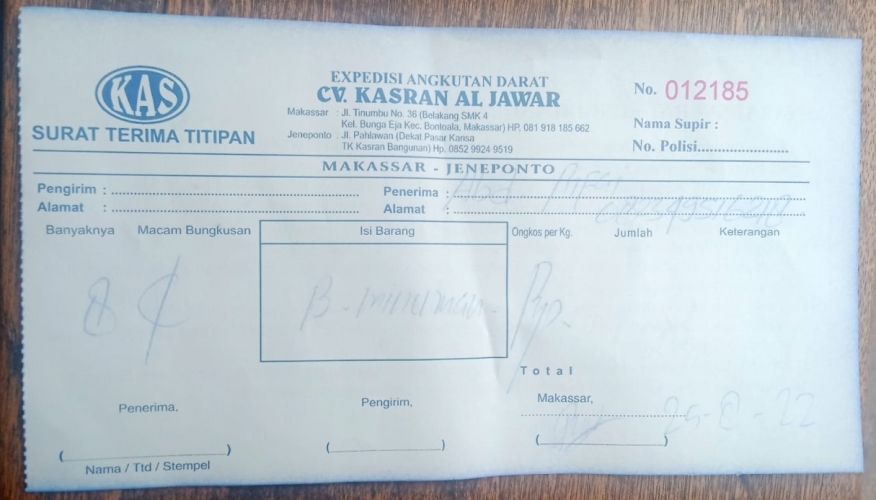 KAS
SURAT TERIMA TITIPAN
EXPEDISI ANGKUTAN DARAT
CV. KASRAN AL JAWAR
Makassar : Jl. Tinumbu No. 36 (Belakang SMK 4
Kel. Bunga Eja Kec. Bontoala, Makassar) HP. 081 918 185 662
Jeneponto : Jl. Pahlawan (Dekat Pasar Karisa
TK Kasran Bangunan) Hp. 0852 9924 9519
No. 012185
Nama Supir :
No. Polisi.......................
MAKASSAR - JENEPONTO
Pengirim : Penerima : Abd
Alamat : Alamat :
Banyaknya Macam Bungkusan Isi Barang Ongkos per Kg. Jumlah Keterangan
8 B - minuman - Rp.
Total
Penerima. Pengirim, Makassar,
25-8-22
(                    ) (                    ) (                    )
Nama / Ttd / Stempel